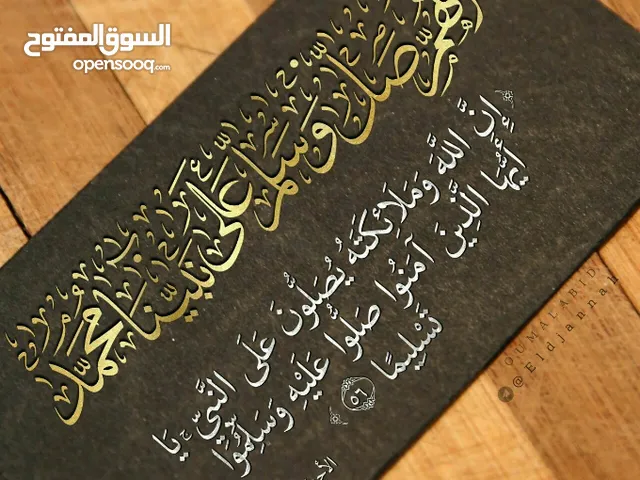 السوق المفتوح
opensooq.com
اللهم صل وسلم على نبينا محمد
إِنَّ اللَّهَ وَمَلَائِكَتَهُ يُصَلُّونَ عَلَى النَّبِيِّ يَا
أَيُّهَا الَّذِينَ آمَنُوا صَلُّوا عَلَيْهِ وَسَلِّمُوا
تَسْلِيمًا ٥٦
OUMALABID
@Eldjannah